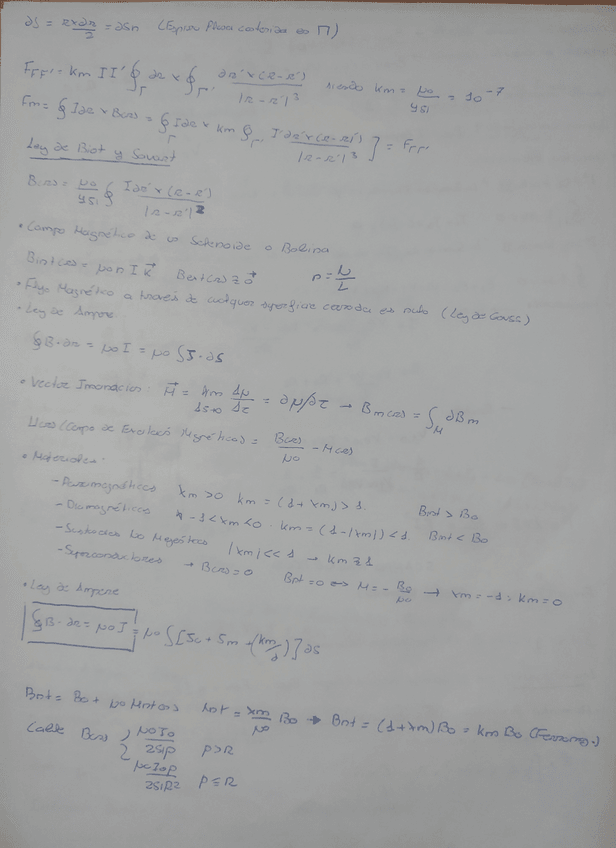 ∂S = r×∂r/2 = ∂Sn (Espira plana contenida en Π)
F_ΓΓ' = km II' ∮_Γ ∂r × ∮_Γ' ∂r'×(r-r')/|r-r'|³ siendo km = μ0/4π = 10⁻⁷
Fm = ∮ I∂r × B(r) = ∮_Γ I∂r × km ∮_Γ' I'∂r'×(r-r')/|r-r'|³ } = F_ΓΓ'
Ley de Biot y Savart
B(r) = μ0/4π ∮ I∂r'×(r-r')/|r-r'|²
• Campo Magnético de un Solenoide o Bobina
Bint(r) = μ0 n I k⃗ Bext(r) ≅ 0⃗ n = N/L
• Flujo Magnético a través de cualquier superficie cerrada es nulo (Ley de Gauss)
• Ley de Ampere
∮B·∂r = μ0 I = μ0 ∫J·∂S
• Vector Imanación: M⃗ = lím Δτ→0 Δμ/Δτ = ∂μ/∂τ → Bm(r) = ∫_M ∂Bm
H(r) (Campo de Magnético) = B(r)/μ0 - M(r)
• Materiales:
- Paramagnéticos χm>0 km = (1+χm)>1. Bint > B0
- Diamagnéticos -1<χm<0 · km = (1-|χm|)<1. Bint < B0
- Sustancias No Magnéticas |χm|<<1 → km ≅ 1
- Superconductores → B(r)=0 Bint=0 ⇔ M = -B0/μ0 → χm=-1 : km=0
• Ley de Ampere
∮B·∂r = μ0 I = μ0 ∫[Jc + Jm + (km/1)]∂S
Bint = B0 + μ0 Mint(r) Mint = χm/μ0 B0 → Bint = (1+χm)B0 = km B0 (Ferromag.)
Cable B(r) { μ0I0/2πρ ρ>R
μ0I0ρ/2πR² ρ≤R